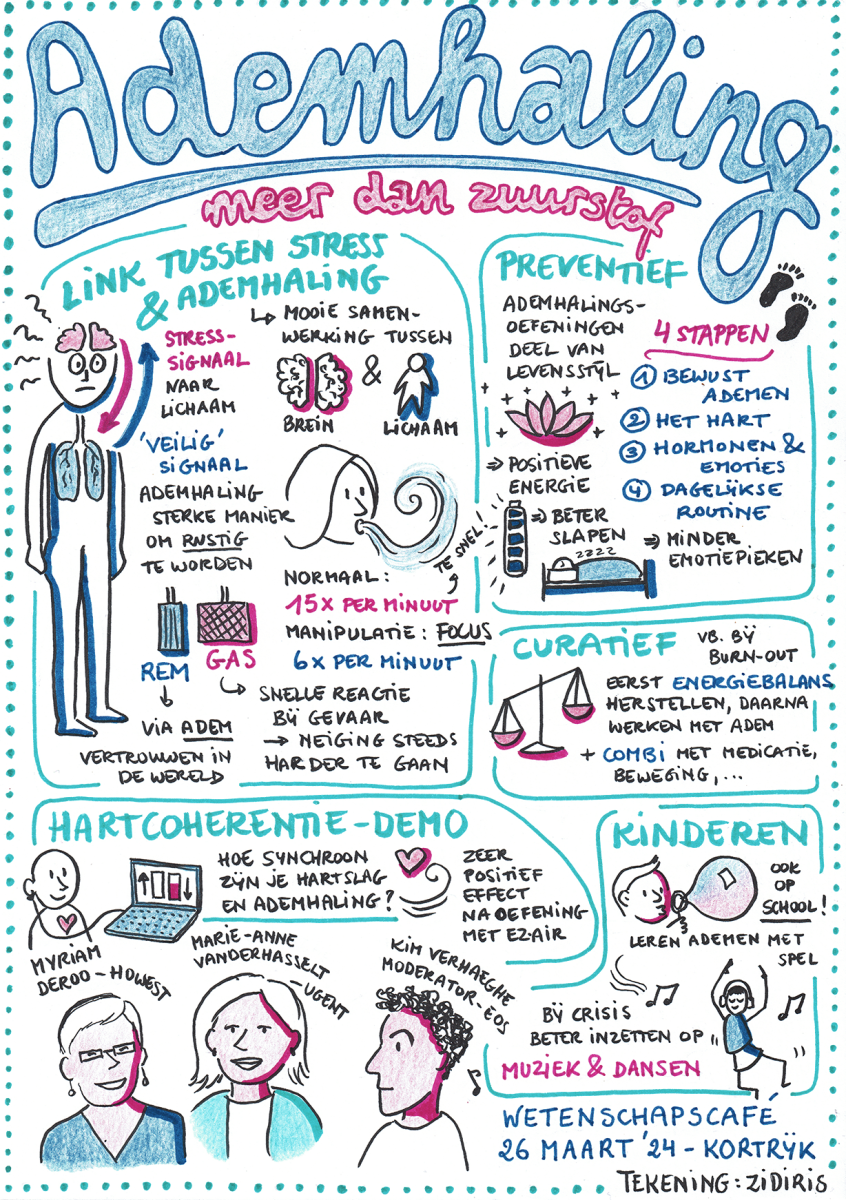 Ademhaling
meer dan zuurstof
LINK TUSSEN STRESS
& ADEMHALING
STRESS-
SIGNAAL
NAAR
LICHAAM
'VEILIG'
SIGNAAL
ADEMHALING
STERKE MANIER
OM RUSTIG
TE WORDEN
↳ MOOIE SAMEN-
WERKING TUSSEN
&
BREIN
LICHAAM
TE SNEL!
NORMAAL:
15x PER MINUUT
MANIPULATIE: FOCUS
6x PER MINUUT
REM
GAS
VIA ADEM
VERTROUWEN IN
DE WERELD
↳ SNELLE REACTIE
BIJ GEVAAR
→ NEIGING STEEDS
HARDER TE GAAN
PREVENTIEF
ADEMHALINGS-
OEFENINGEN
DEEL VAN
LEVENSSTIJL
⇒ POSITIEVE
ENERGIE
⇒ BETER
SLAPEN
zzzz
⇒ MINDER
EMOTIEPIEKEN
4 STAPPEN
① BEWUST
ADEMEN
② HET HART
③ HORMONEN &
EMOTIES
④ DAGELIJKSE
ROUTINE
CURATIEF
VB. BIJ
BURN-OUT
EERST ENERGIEBALANS
HERSTELLEN, DAARNA
WERKEN MET ADEM
+ COMBI MET MEDICATIE,
BEWEGING,...
HARTCOHERENTIE-DEMO
HOE SYNCHROON
ZIJN JE HARTSLAG
EN ADEMHALING?
ZEER
POSITIEF
EFFECT
NA OEFENING
MET EZ-AIR
MYRIAM
DEROO-HOWEST
MARIE-ANNE
VANDERHASSELT
-UGENT
KIM VERHAEGHE
MODERATOR-EOS
KINDEREN
OOK
OP
SCHOOL!
LEREN ADEMEN MET
SPEL
BIJ CRISIS
BETER INZETTEN OP
MUZIEK & DANSEN
WETENSCHAPSCAFÉ
26 MAART '24 - KORTRIJK
TEKENING: ZIDIRIS